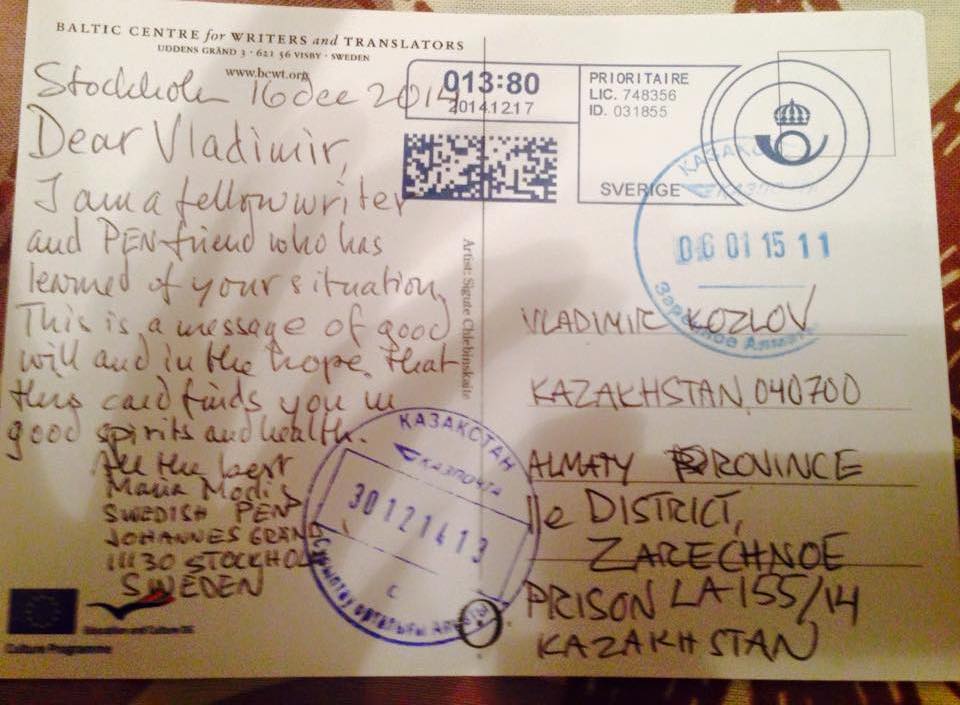 BALTIC CENTRE for WRITERS and TRANSLATORS
UDDENS GRÄND 3 · 621 56 VISBY · SWEDEN
www.bcwt.org
Stockholm 16 dec 2014
Dear Vladimir,
I am a fellow writer
and PEN friend who has
learned of your situation.
This is a message of good
will and in the hope that
this card finds you in
good spirits and health.
All the best
Maria Modig
SWEDISH PEN
JOHANNES GRÄND 1
11130 STOCKHOLM
SWEDEN
Education and Culture DG
Culture Programme
Artist: Sigute Chlebinskaite
013:80
2014.12.17
PRIORITAIRE
LIC. 748356
ID. 031855
SVERIGE
КАЗАК
КАЗПОЧТА
06 01 15 11
Заречное Алмат
VLADIMIR KOZLOV
KAZAKHSTAN, 040700
ALMATY PROVINCE
Ile DISTRICT,
ZARECHNOE
PRISON LA 155/14
KAZAKHSTAN
КАЗАКСТАН
КАЗПОЧТА
30 12 14 13
С